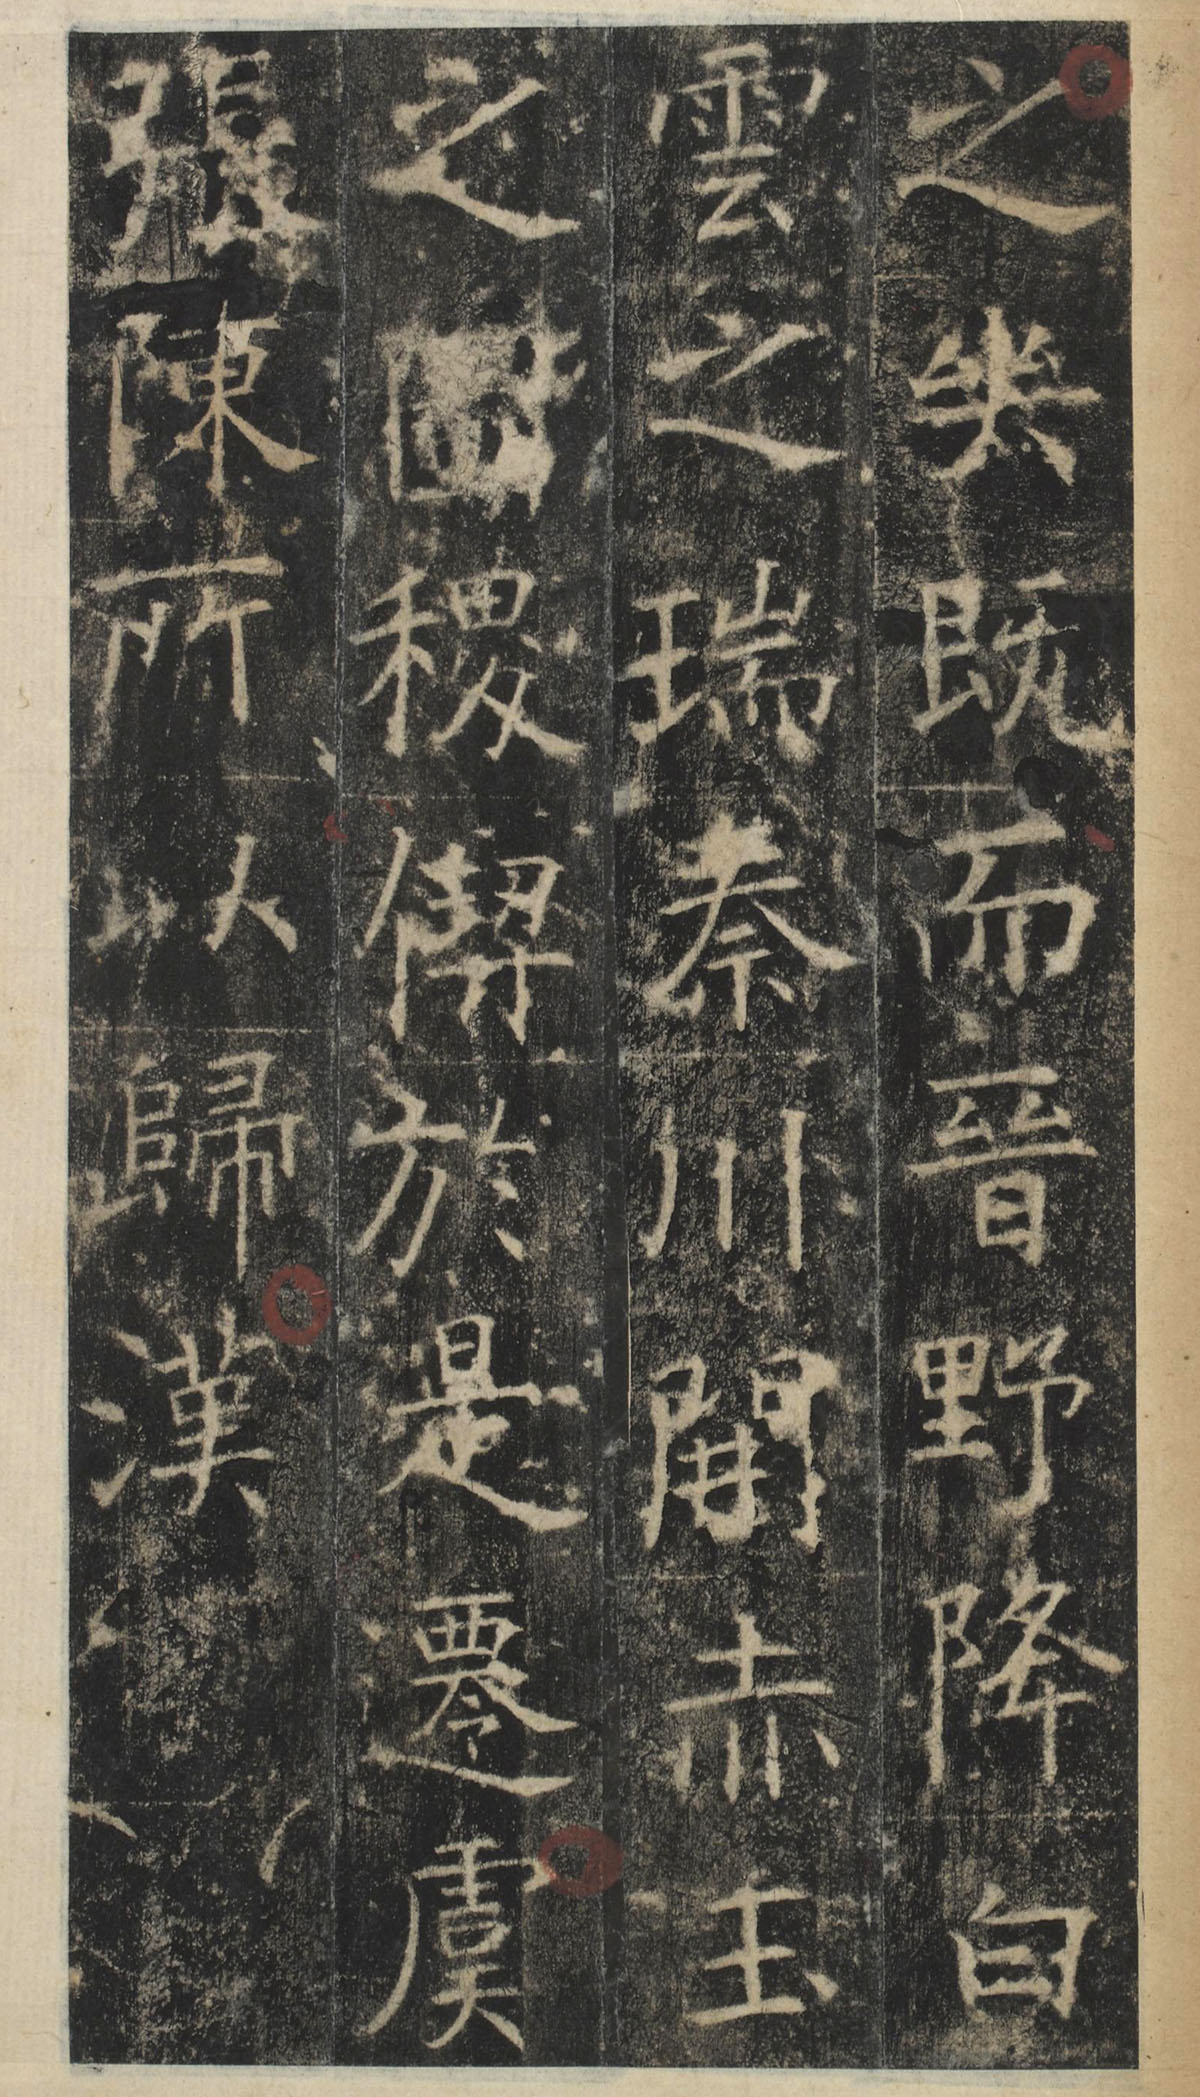 之幾既而晉野降白
雲之瑞秦川開赤玉
之圖稷偰於是遷虞
張陳所以歸漢